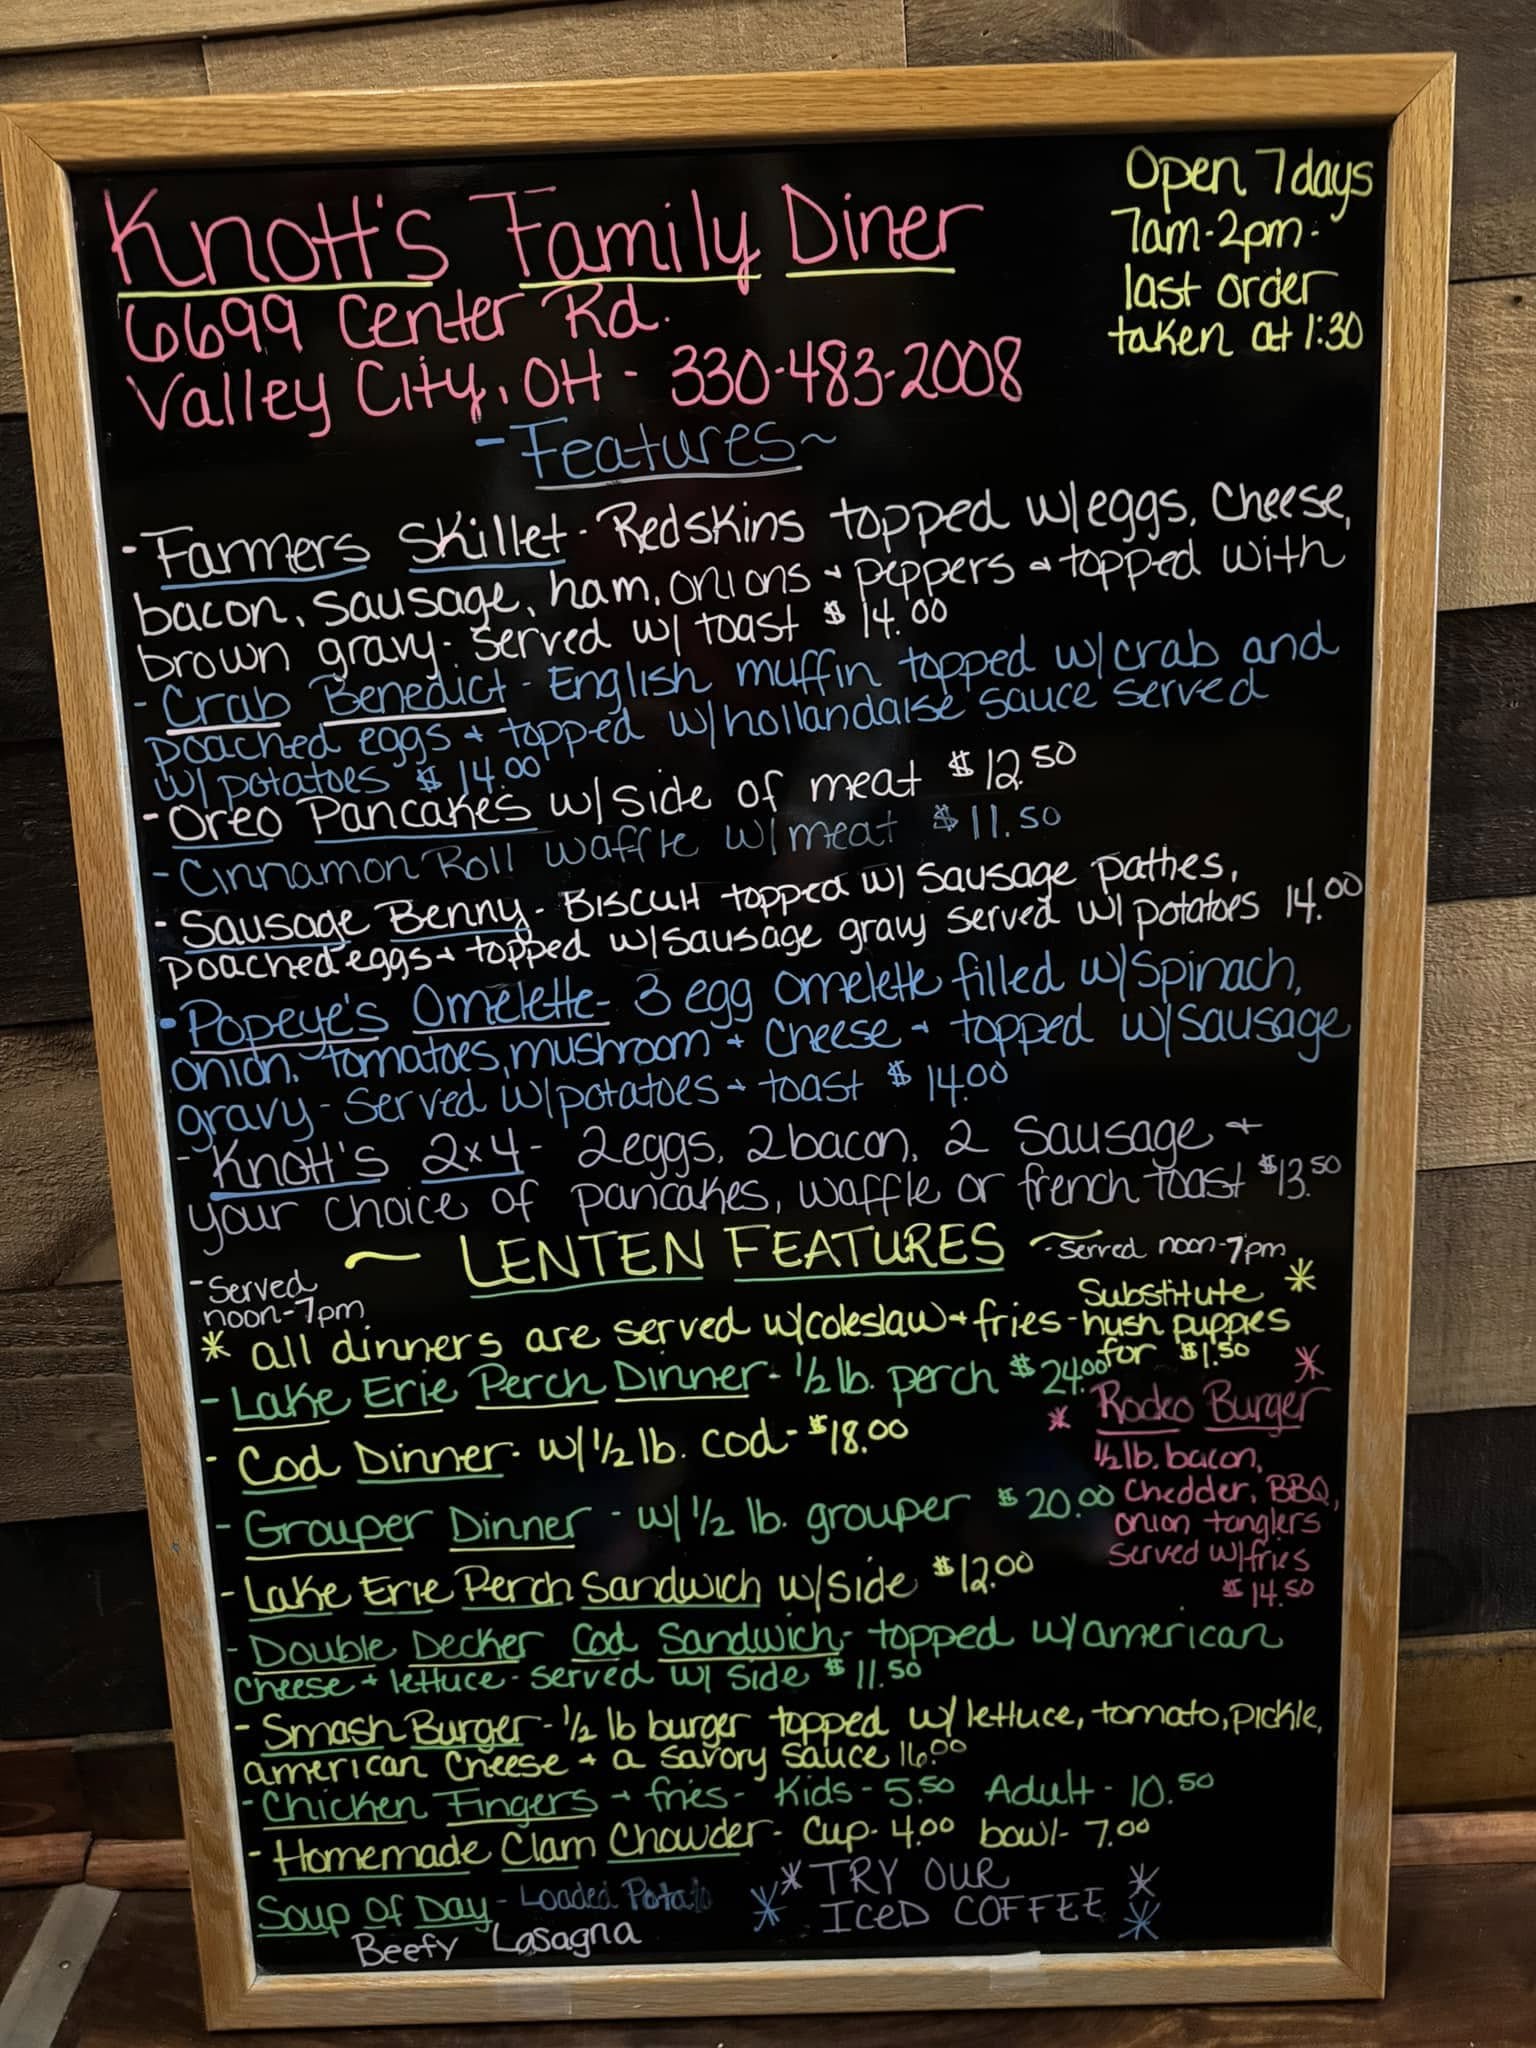 Knott's Family Diner
6699 Center Rd.
Valley City, OH - 330-483-2008
Open 7 days
7am-2pm-
last order
taken at 1:30
-Features~
- Farmers Skillet - Redskins topped w/eggs, cheese,
bacon, sausage, ham, onions + peppers + topped with
brown gravy- served w/ toast $14.00
- Crab Benedict - English muffin topped w/crab and
poached eggs + topped w/hollandaise sauce served
w/potatoes $14.00
- Oreo Pancakes w/side of meat $12.50
- Cinnamon Roll waffle w/meat $11.50
- Sausage Benny- Biscuit topped w/ sausage patties,
poached eggs + topped w/sausage gravy served w/potatoes 14.00
- Popeye's Omelette- 3 egg omelette filled w/spinach,
onion, tomatoes, mushroom + cheese + topped w/sausage
gravy- served w/potatoes + toast $14.00
- Knott's 2x4- 2 eggs, 2 bacon, 2 sausage +
your choice of pancakes, waffle or french toast $13.50
~ LENTEN FEATURES ~
-Served
noon-7pm
-Served noon-7pm
* all dinners are served w/coleslaw + fries - Substitute *
hush puppies
for $1.50
- Lake Erie Perch Dinner- 1/2 lb. perch $24.00
- Cod Dinner- w/ 1/2 lb. cod- $18.00
- Grouper Dinner - w/ 1/2 lb. grouper $20.00
* Rodeo Burger *
1/2 lb. bacon,
chedder, BBQ,
onion tanglers
served w/fries
$14.50
- Lake Erie Perch Sandwich w/side $12.00
- Double Decker Cod Sandwich- topped w/american
cheese + lettuce- served w/ side $11.50
- Smash Burger- 1/2 lb burger topped w/lettuce, tomato, pickle,
american cheese + a savory sauce 16.00
- Chicken Fingers + fries- Kids - 5.50 Adult - 10.50
- Homemade Clam Chowder- cup- 4.00 bowl- 7.00
Soup of Day - Loaded Potato
Beefy Lasagna
* TRY OUR *
* ICED COFFEE *